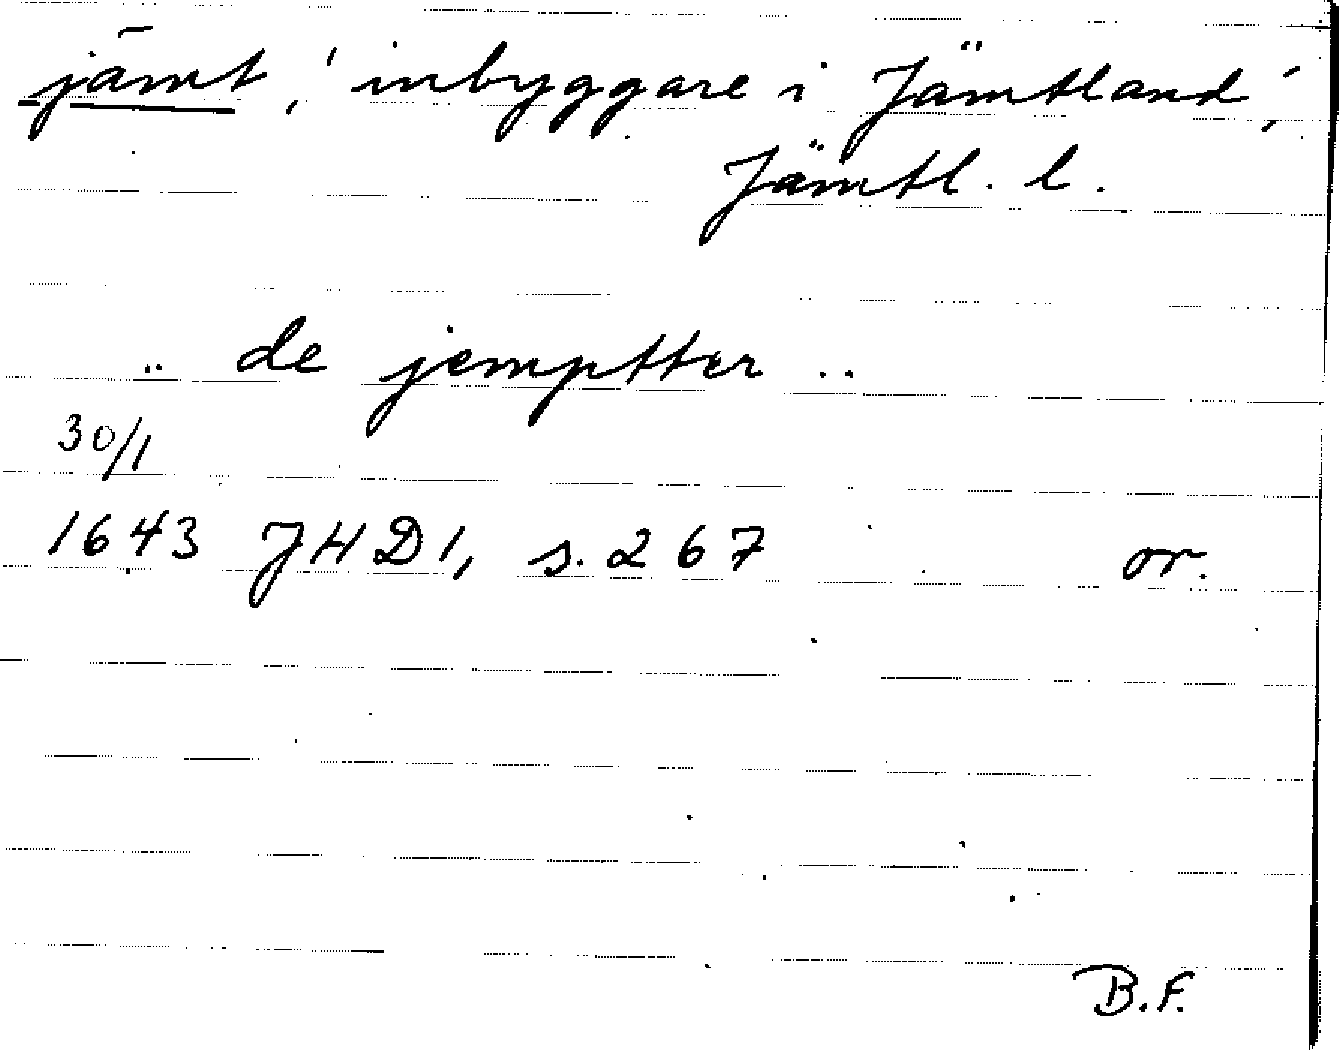 jämt, 'inbyggare i Jämtland',
Jämtl. l.
.. de jemptter ..
30/1
1643 JHD1, s. 267 or.
B.F.